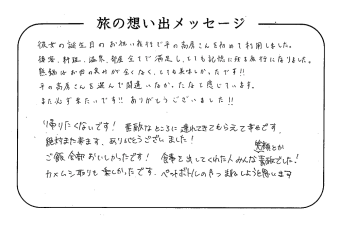 旅の想い出メッセージ
彼女の誕生日のお祝い旅行で千の高原さんを初めて利用しました。
接客、料理、温泉、部屋全てで満足し、とても記憶に残る旅行になりました。
熱物はお肉の臭みが全くなく、とても美味しかったです!!
千の高原さんを選んで間違いなかったなと感じています。
また必ずきたいです!! ありがとうございました!!
帰りたくないです! 素敵なところに連れてきてもらえて幸せです。
絶対また来ます。ありがとうございました!
ご飯全部おいしかったです! 食事を出してくれた人みんな笑顔とか素敵でした!
カメムシ取りも楽しかったです。ペットボトルのやつまねしようと思います